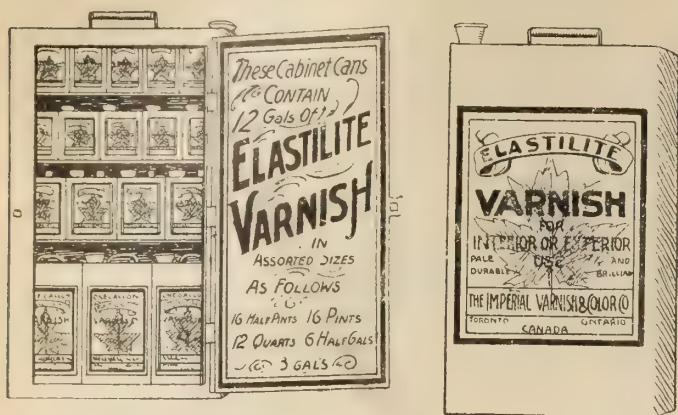 These Cabinet Cans
CONTAIN
12 Gals Of
ELASTILITE
VARNISH
IN
ASSORTED SIZES
AS FOLLOWS
16 HALF PINTS 16 PINTS
12 QUARTS 6 HALF GALS
3 GAL'S
ELASTILITE
VARNISH
FOR
INTERIOR OR EXTERIOR
USE
PALE AND
DURABLE BRILLIANT
THE IMPERIAL VARNISH & COLOR CO
TORONTO ONTARIO
CANADA